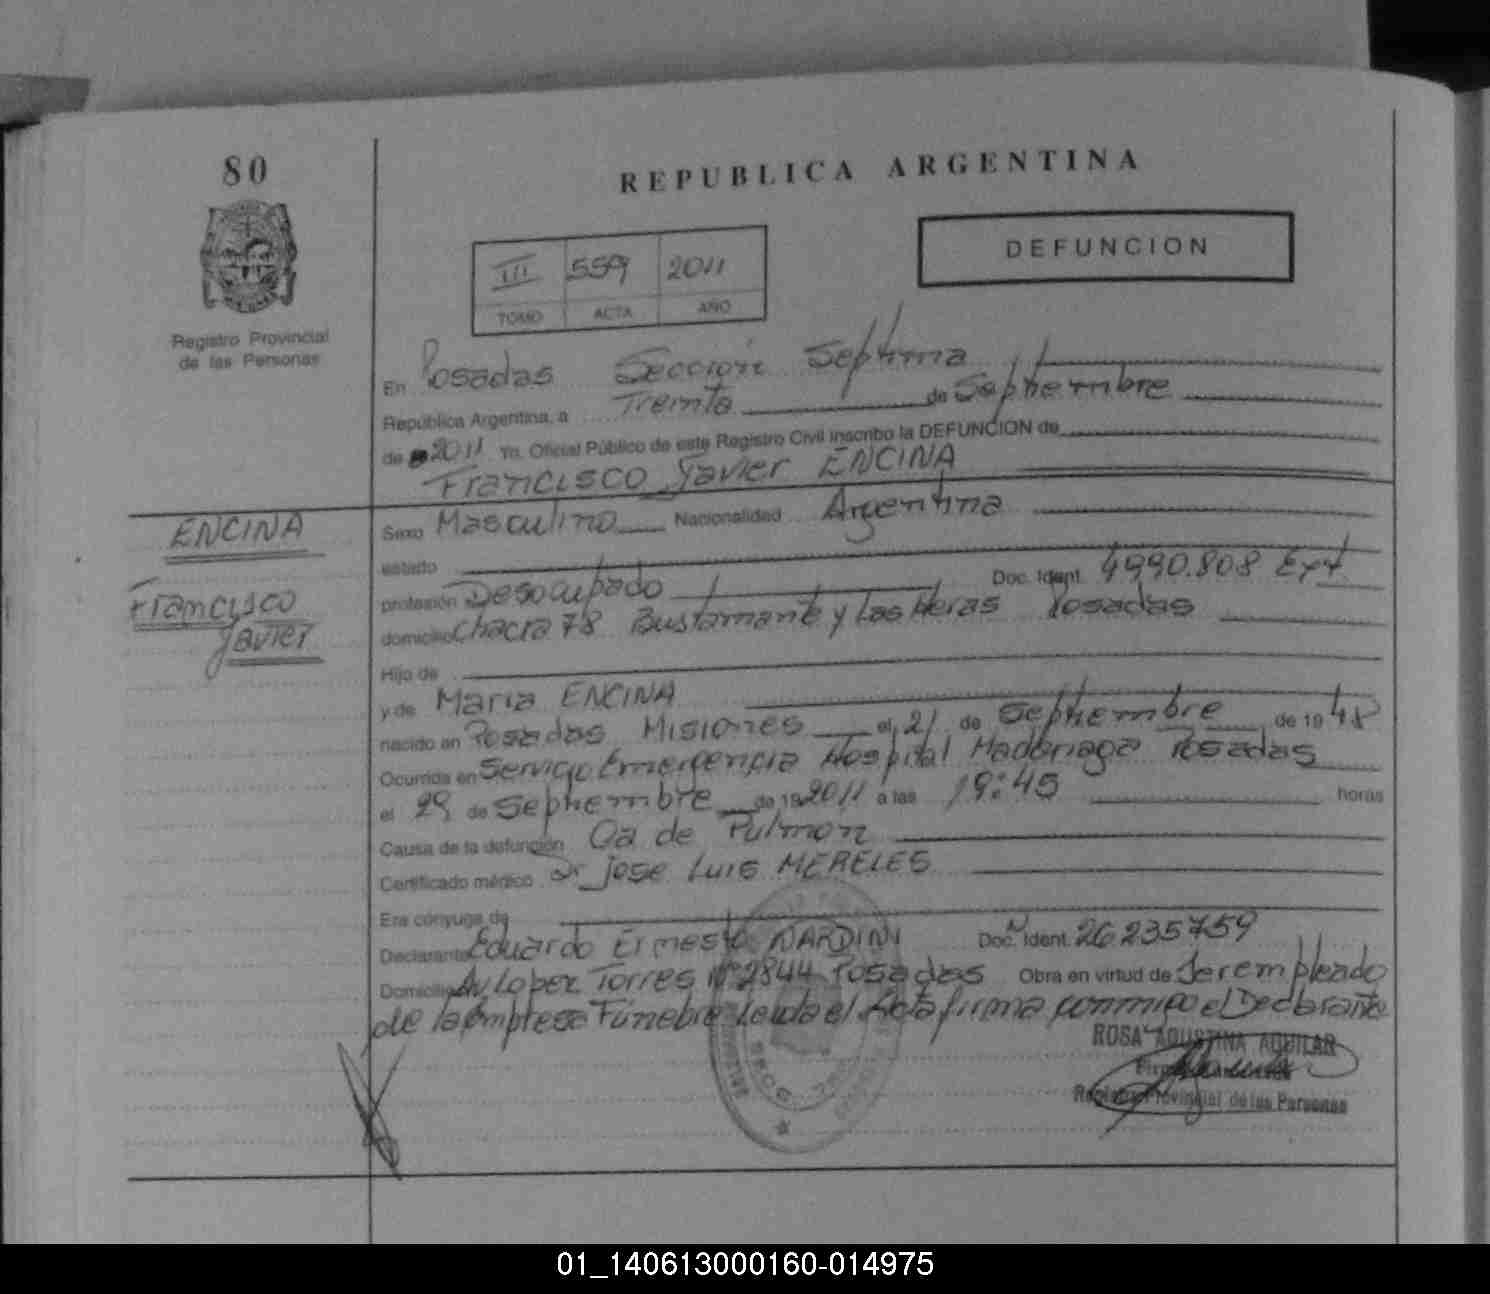 80
REPUBLICA ARGENTINA
DEFUNCION
III 559 2011
TOMO ACTA AÑO
Registro Provincial
de las Personas
En Posadas Sección Septima
República Argentina, a Treinta de Septiembre
de 2011 Yo, Oficial Público de este Registro Civil inscribo la DEFUNCION de
Francisco Javier ENCINA
ENCINA
Francisco
Javier
Sexo Masculino Nacionalidad Argentina
estado
profesión Desocupado Doc. Ident. 4990.808 Ext
domicilio Chacra 78 Bustamante y Las Heras Posadas
Hijo de
y de Maria ENCINA
nacido en Posadas Misiones el 21 de Septiembre de 1948
Ocurrida en Servicio Emergencia Hospital Madariaga Posadas
el 29 de Septiembre de 19 2011 a las 19:45 horas
Causa de la defunción Ca de Pulmon
Certificado médico Dr Jose Luis MERELES
Era cónyuge de
Declarante Eduardo Ernesto NARDINI Doc. Ident. 26235759
Domicilio Av Lopez Torres Nº 2844 Posadas Obra en virtud de Ser empleado
de la Empresa Funebre Leida el Acta firma conmigo el Declarante
ROSA AGUSTINA AQUILAR
Registro Provincial de las Personas
01_140613000160-014975